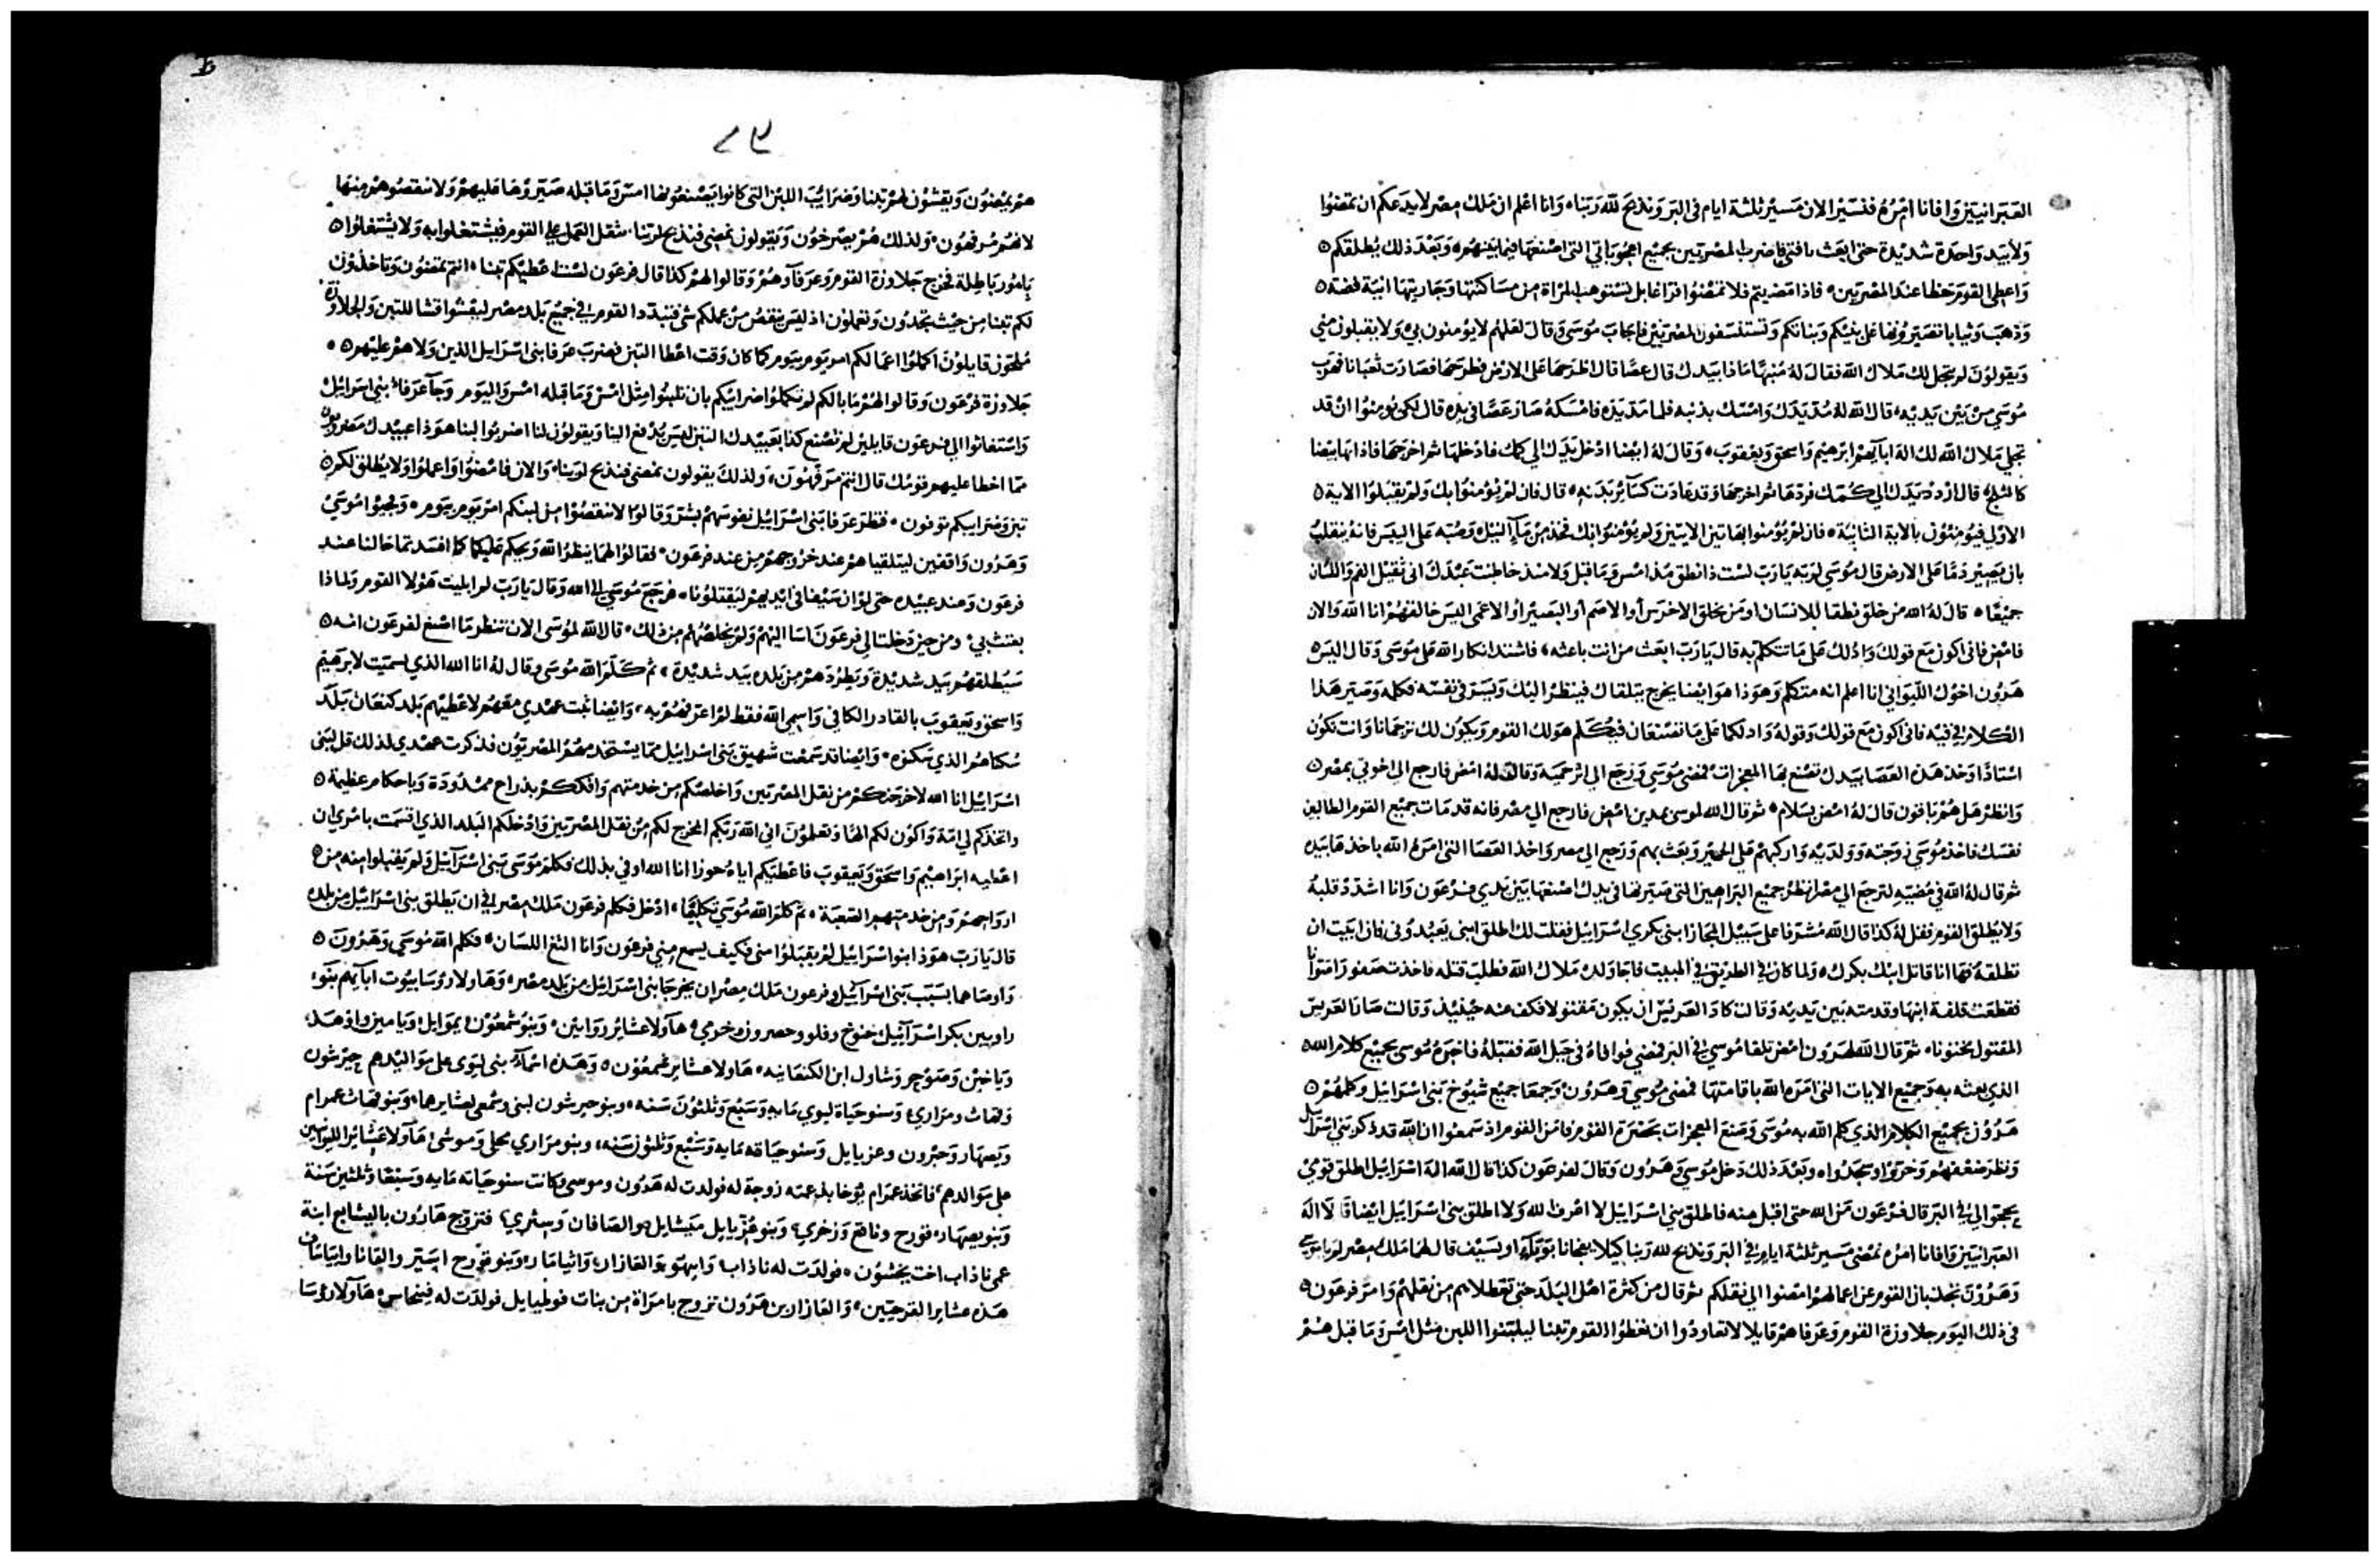 العبرانيين وافانا امره فنسير الان مسير ثلثة ايام في البر ونذبح لله ربنا وانا اعلم ان ملك مصر لا يدعكم ان تمضوا
ولا بيد واحدة شديدة حتى ابعث بافتي فاضرب المصريين بجميع اعجوباتي التي اصنعها فيما بينهم وبعد ذلك يطلقكم
واعطي القوم حظا عند المصريين فاذا مضيتم فلا تمضوا فراغا بل تستوهب المراة من مساكنتها وجاريتها انية فضة
وذهب وثيابا تصيرونها على بنيكم وبناتكم وتستلسفون المصريين فاجاب موسى وقال لعلهم لا يؤمنون بي ولا يقبلون مني
ويقولون لم يتجل لك ملاك الله فقال له منبها ماذا بيدك قال عصا قال اطرحها على الارض فطرحها فصارت ثعبانا فهرب
موسى من بين يديه قال الله له مد يدك وامسك بذنبه فلما مد يده فامسكه صار عصا في يده قال لكي يؤمنوا ان قد
تجلى ملاك الله لك اله ابآيهم ابرهيم واسحق ويعقوب وقال له ايضا ادخل يدك الي كمك فادخلها ثم اخرجها فاذا بها بيضا
كالثلج قال اردد يدك الي كمك فردها ثم اخرجها وقد عادت كسآئر بدنه قال فان لم يؤمنوا بك ولم يقبلوا الاية
الاولى فيؤمنون بالاية الثانية فان لم يؤمنوا بهاتين الايتين ولم يؤمنوا بك فخذ من مآ النيل وصبه على اليبس فانه ينقلب
بان يصير دما على الارض قال موسى لربه يارب لست ذا نطق مذ امس وما قبل ولا منذ خاطبت عبدك اني ثقيل الفم واللسان
جميعا قال له الله من خلق نطقا للانسان او من يخلق الاخرس او الاصم او البصير او الاعمى اليس خالقهم انا الله والان
فامض فاني اكون مع قولك وادلك على ما تتكلم به قال يارب ابعث من انت باعثه فاشتد انكار الله على موسى وقال اليس
هرون اخوك الليواني انا اعلم انه متكلم وهوذا هو ايضا يخرج يتلقاك فينظر اليك ويسر في نفسه فكلمه وصير هذا
الكلام في فيه فاني اكون مع قولك وقوله وادلكما على ما تصنعان فيكلم هو لك القوم ويكون لك ترجمانا وانت تكون
استاذا وخذ هذه العصا بيدك تصنع بها المعجزات فمضى موسى ورجع الي اثر حميه وقال له امض فارجع الى اخوتي بمصر
وانظر هل هم باقون قال له امض بسلام ثم قال الله لموسى بمدين امض فارجع الي مصر فانه قد مات جميع القوم الطالبين
نفسك فاخذ موسى زوجته وولديه واركبهم على الحمير وبعث بهم ورجع الي مصر واخذ العصا التي امره الله باخذها بيده
ثم قال له الله في مضيه لترجع الي مصر انظر جميع البراهين التي صيرتها في يدك اصنعها بين يدي فرعون وانا اشدد قلبه
ولا يطلق القوم فقل له كذا قال الله مشرفا على سبيل المجاز ابني بكري اسرائيل فقلت لك اطلق ابني يعبدوني فان ابيت ان
تطلقه فها انا قاتل ابنك بكرك ولما كان في الطريق في المبيت فاجا ولده ملاك الله فطلب قتله فاخذت صفورا متوانا
فقطعت قلفة ابنها وقدمته بين يديه وقالت كاد العريس ان يكون مقتولا فكف عنه حينئذ وقالت صانا العريس
المقتول مختونا ثم قال الله لهرون امض تلقا موسى في البر فمضى فوافاه في جبل الله فقبله فاخبره موسى بجميع كلام الله
الذي بعثه به وجميع الايات التي امره الله باقامتها فمضى موسى وهرون وجمعا جميع شيوخ بني اسرائيل وكلمهم
هرون بجميع الكلام الذي كلم الله به موسى وصنع المعجزات بحضرة القوم فامن القوم اذ سمعوا ان الله قد ذكر بني اسرائيل
ونظر ضعفهم وخروا وسجدوا وبعد ذلك دخل موسى وهرون وقال لفرعون كذا قال الله اله اسرائيل اطلق قومي
يحجوا لي في البر قال فرعون من الله حتى اقبل منه فاطلق بني اسرائيل لا اعرف الله ولا اطلق بني اسرائيل ايضا قالا اله
العبرانيين وافانا امره نمضي مسير ثلثة ايام في البر ونذبح لله ربنا كيلا يفجانا بوباء او بسيف قال لهما ملك مصر لم يا موسى
وهرون تجذبان القوم عن اعمالهم امضوا الي ثقلكم ثم قال من كثرة اهل البلد حتى تعطلاهم من ثقلهم وامر فرعون
في ذلك اليوم جلاوزة القوم وعرفاهم قايلا لا تعاودوا ان تعطوا القوم تبنا ليلبنوا اللبن مثل امس وما قبل هم
٨٣
هم يمضون ويقشون لهم تبنا وضرايب اللبن التي كانوا يصنعونها امس وما قبله صيروها عليهم ولا تنقصوهم منها
لانهم مرفهون ولذلك هم يصرخون ويقولون نمضي فنذبح لربنا يثقل العمل على القوم فيشتغلوا به ولا يشتغلوا
بامور باطلة فخرج جلاوزة القوم وعرفآوهم وقالوا لهم كذا قال فرعون لست اعطيكم تبنا انتم تمضون وتاخذون
لكم تبنا من حيث تجدون وتعملون اذ ليس ينقص من عملكم شي فتبدد القوم في جميع بلد مصر ليقشوا قشا للتبن والجلاوزة
ملحون قايلون اكملوا اعمالكم امر يوم بيوم كما كان وقت اعطا التبن فضرب عرفا بني اسرايل الذين ولاهم عليهم
جلاوزة فرعون وقالوا لهم ما بالكم لم تكملوا ضرايبكم بان تلبنوا مثل امس وما قبله امس واليوم وجآ عرفا بني اسرايل
واستغاثوا الي فرعون قايلين لم تصنع كذا بعبيدك التبن ليس يدفع الينا ويقولون لنا اضربوا لبنا هوذا عبيدك مضروبون
مما اخطا عليهم قومك قال انتم مرفهون ولذلك يقولون نمضي فنذبح لربنا والان فامضوا واعملوا ولا يطلق لكم
تبن وضرايبكم توفون فنظر عرفا بني اسرائيل نفوسهم بشر وقالوا لا تنقصوا من لبنكم امر يوم بيوم وفجوا موسى
وهرون واقفين ليتلقياهم عند خروجهم من عند فرعون فقالوا لهما ينظر الله ويحكم عليكما كما افسدتما حالنا عند
فرعون وعند عبيده حتى لو ان سيفا في ايديهم ليقتلونا فرجع موسى الى الله وقال يارب لم ابليت هولا القوم ولماذا
بعثت بي ومن حين دخلت الي فرعون اسا اليهم ولم يخلصهم من ذلك قال الله لموسى الان تنظر ما اصنع لفرعون انه
سيطلقهم بيد شديدة ويطردهم من بلده بيد شديدة ثم كلم الله موسى وقال له انا الله الذي اسميت لابرهيم
واسحق ويعقوب بالقادر الكافي واسمي الله فقط لم اعرفهم به وايضا ثبت عهدي معهم لاعطيهم بلد كنعان بلد
سكناهم الذي سكنوه وايضا قد سمعت شهيق بني اسرائيل مما يستخدمهم المصريون فذكرت عهدي لذلك قل لبني
اسرائيل انا الله لاخرجنكم من ثقل المصريين واخلصكم من خدمتهم وافككم بذراع ممدودة وباحكام عظيمة
واتخذكم لي امة واكون لكم الها وتعلمون اني الله ربكم المخرج لكم من ثقل المصريين وادخلكم البلد الذي اقسمت بامري ان
اعطيه ابراهيم واسحق ويعقوب فاعطيكم اياه حوزا انا الله اوفي بذلك فكلم موسى بني اسرآئيل ولم يقبلوا منه من
ارواحهم ومن خدمتهم الصعبة ثم كلم الله موسى تكليما ادخل فكلم فرعون ملك مصر في ان يطلق بني اسرائيل من بلده
قال يارب هوذا بنوا اسرائيل لم يقبلوا مني فكيف يسمع مني فرعون وانا الثغ اللسان فكلم الله موسى وهرون
واوصاهما بسبب بني اسرآئيل وفرعون ملك مصر ان يخرجا بني اسرائيل من بلد مصر وهاولا رؤسا بيوت ابآيهم بنو
راوبين بكر اسرآئيل حنوخ وفلوو حصرون وخرمي هآولا عشاير روابين وبنو شمعون يموايل ويامين واوهد
وياخين وصوحر وشاول ابن الكنعانيه هاولا عشاير شمعون وهذه اسمآء بني ليوى على مواليدهم جيرشون
وقهات ومراري وسنو حياة ليوي مايه وسبع وثلثون سنه وبنو جيرشون لبني وشمعي لعشايرها وبنو قهاث عمرام
ويصهار وحبرون وعزيايل وسنو حياة قهت مايه وسبع وثلثون سنه وبنو مراري محلي وموشى هآولا عشائر الليوانيين
على مواليدهم فاتخذ عمرام يوخابذ عمته زوجة له فولدت له هرون وموسى وكانت سنو حياته مايه وسبعا وثلثين سنة
وبنو يصهار قورح ونافج وزخري وبنو عزيايل ميشايل والصافان وسثري فتزوج هارون باليشابع ابنة
عميناذاب اخت نحشون فولدت له ناذاب وابيهو والعازار وايثامار وبنو قورح اسير والقانا وابياساف
هذه عشاير القرحيين والعازار بن هرون تزوج بامراة من بنات فوطيايل فولدت له فينحاس هآولا رؤسا